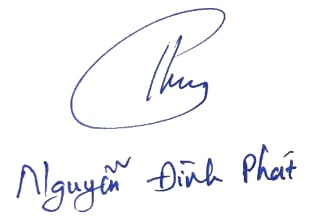 Nguyễn Đình Phát